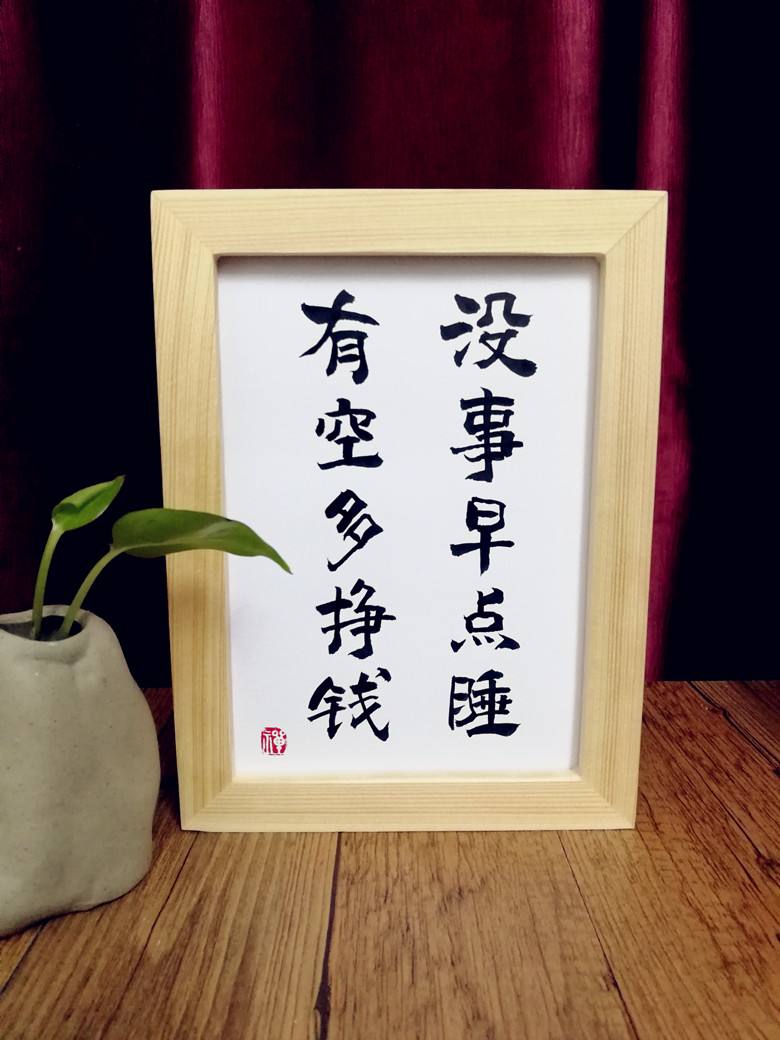 没事早点睡
有空多挣钱
禅